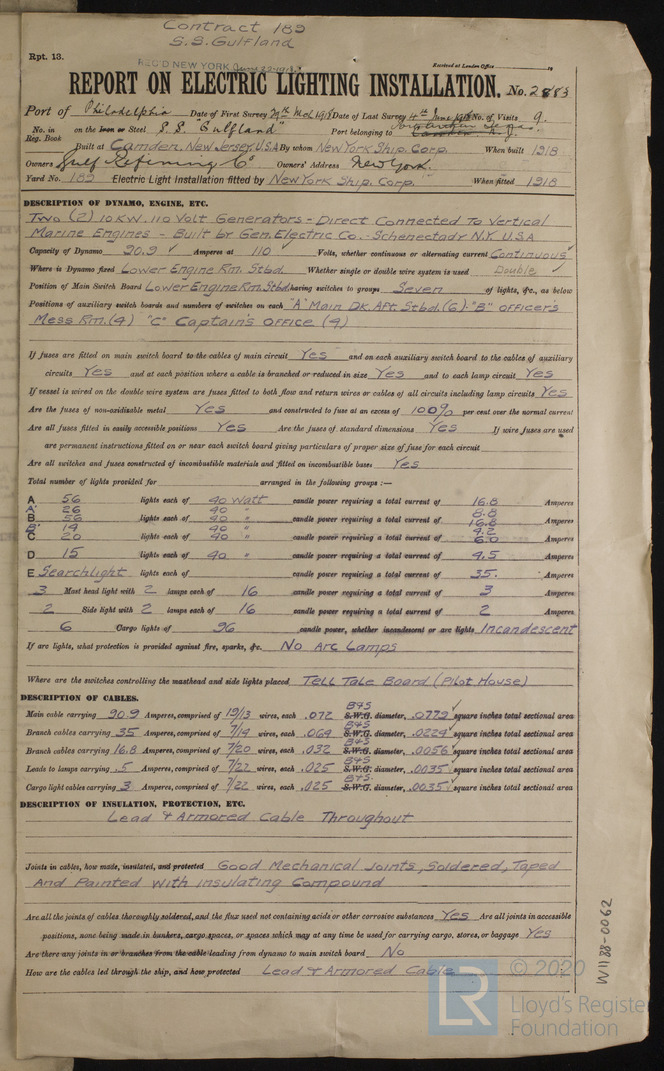 Contract 189
S.S. Gulfland
Rpt. 13.
REC'D NEW YORK June 22 1918
Received at London Office 19
REPORT ON ELECTRIC LIGHTING INSTALLATION. No. 2883
Port of Philadelphia Date of First Survey 29th Mch 1918 Date of Last Survey 4th June 1918 No. of Visits 9.
No. in Reg. Book on the Iron or Steel S.S. "Gulfland" Port belonging to
Built at Camden, New Jersey, U.S.A By whom New York Ship. Corp. When built 1918
Owners Gulf Refining Co Owners' Address New York.
Yard No. 189 Electric Light Installation fitted by New York Ship. Corp. When fitted 1918
DESCRIPTION OF DYNAMO, ENGINE, ETC.
Two (2) 10 KW. 110 Volt Generators - Direct Connected To Vertical
Marine Engines - Built by Gen. Electric Co. - Schenectady N.Y. U.S.A
Capacity of Dynamo 90.9 ✓ Amperes at 110 ✓ Volts, whether continuous or alternating current Continuous ✓
Where is Dynamo fixed Lower Engine Rm. Stbd. Whether single or double wire system is used Double ✓
Position of Main Switch Board Lower Engine Rm. Stbd. having switches to groups Seven of lights, &c., as below
Positions of auxiliary switch boards and numbers of switches on each "A" Main Dk. Aft. Stbd. (6) - "B" Officer's
Mess Rm. (4) "C" Captain's Office (4)
If fuses are fitted on main switch board to the cables of main circuit Yes and on each auxiliary switch board to the cables of auxiliary
circuits Yes and at each position where a cable is branched or reduced in size Yes and to each lamp circuit Yes
If vessel is wired on the double wire system are fuses fitted to both flow and return wires or cables of all circuits including lamp circuits Yes
Are the fuses of non-oxidizable metal Yes and constructed to fuse at an excess of 100% per cent over the normal current
Are all fuses fitted in easily accessible positions Yes Are the fuses of standard dimensions Yes If wire fuses are used
are permanent instructions fitted on or near each switch board giving particulars of proper size of fuse for each circuit
Are all switches and fuses constructed of incombustible materials and fitted on incombustible bases Yes
Total number of lights provided for arranged in the following groups :—
A 56 lights each of 40 Watt candle power requiring a total current of 16.8 Amperes
A' 26 40 " 8.8
B 56 lights each of 40 " candle power requiring a total current of 16.8 Amperes
B' 14 40 " 4.2
C 20 lights each of 40 " candle power requiring a total current of 6.0 Amperes
D 15 lights each of 40 " candle power requiring a total current of 4.5 Amperes
E Searchlight lights each of candle power requiring a total current of 35. Amperes
3 Mast head light with 2 lamps each of 16 candle power requiring a total current of 3 Amperes
2 Side light with 2 lamps each of 16 candle power requiring a total current of 2 Amperes
6 Cargo lights of 96 candle power, whether incandescent or arc lights Incandescent
If arc lights, what protection is provided against fire, sparks, &c. No Arc Lamps
Where are the switches controlling the masthead and side lights placed Tell Tale Board (Pilot House)
DESCRIPTION OF CABLES.
Main cable carrying 90.9 Amperes, comprised of 19/13 wires, each .072 B+S S.W.G. diameter, .0772 ✓ square inches total sectional area
Branch cables carrying 35 Amperes, comprised of 7/14 wires, each .064 B+S S.W.G. diameter, .0224 ✓ square inches total sectional area
Branch cables carrying 16.8 Amperes, comprised of 7/20 wires, each .032 B+S S.W.G. diameter, .0056 ✓ square inches total sectional area
Leads to lamps carrying .5 Amperes, comprised of 7/22 wires, each .025 B+S S.W.G. diameter, .0035 ✓ square inches total sectional area
Cargo light cables carrying 3 Amperes, comprised of 7/22 wires, each .025 B+S S.W.G. diameter, .0035 ✓ square inches total sectional area
DESCRIPTION OF INSULATION, PROTECTION, ETC.
Lead & Armored Cable Throughout
Joints in cables, how made, insulated, and protected Good Mechanical Joints, Soldered, Taped
And Painted With Insulating Compound
Are all the joints of cables thoroughly soldered, and the flux used not containing acids or other corrosive substances Yes Are all joints in accessible
positions, none being made in bunkers, cargo spaces, or spaces which may at any time be used for carrying cargo, stores, or baggage Yes
Are there any joints in or branches from the cable leading from dynamo to main switch board No
How are the cables led through the ship, and how protected Lead & Armored Cable
W1188-0062
© 2020
LR
Lloyd's Register
Foundation